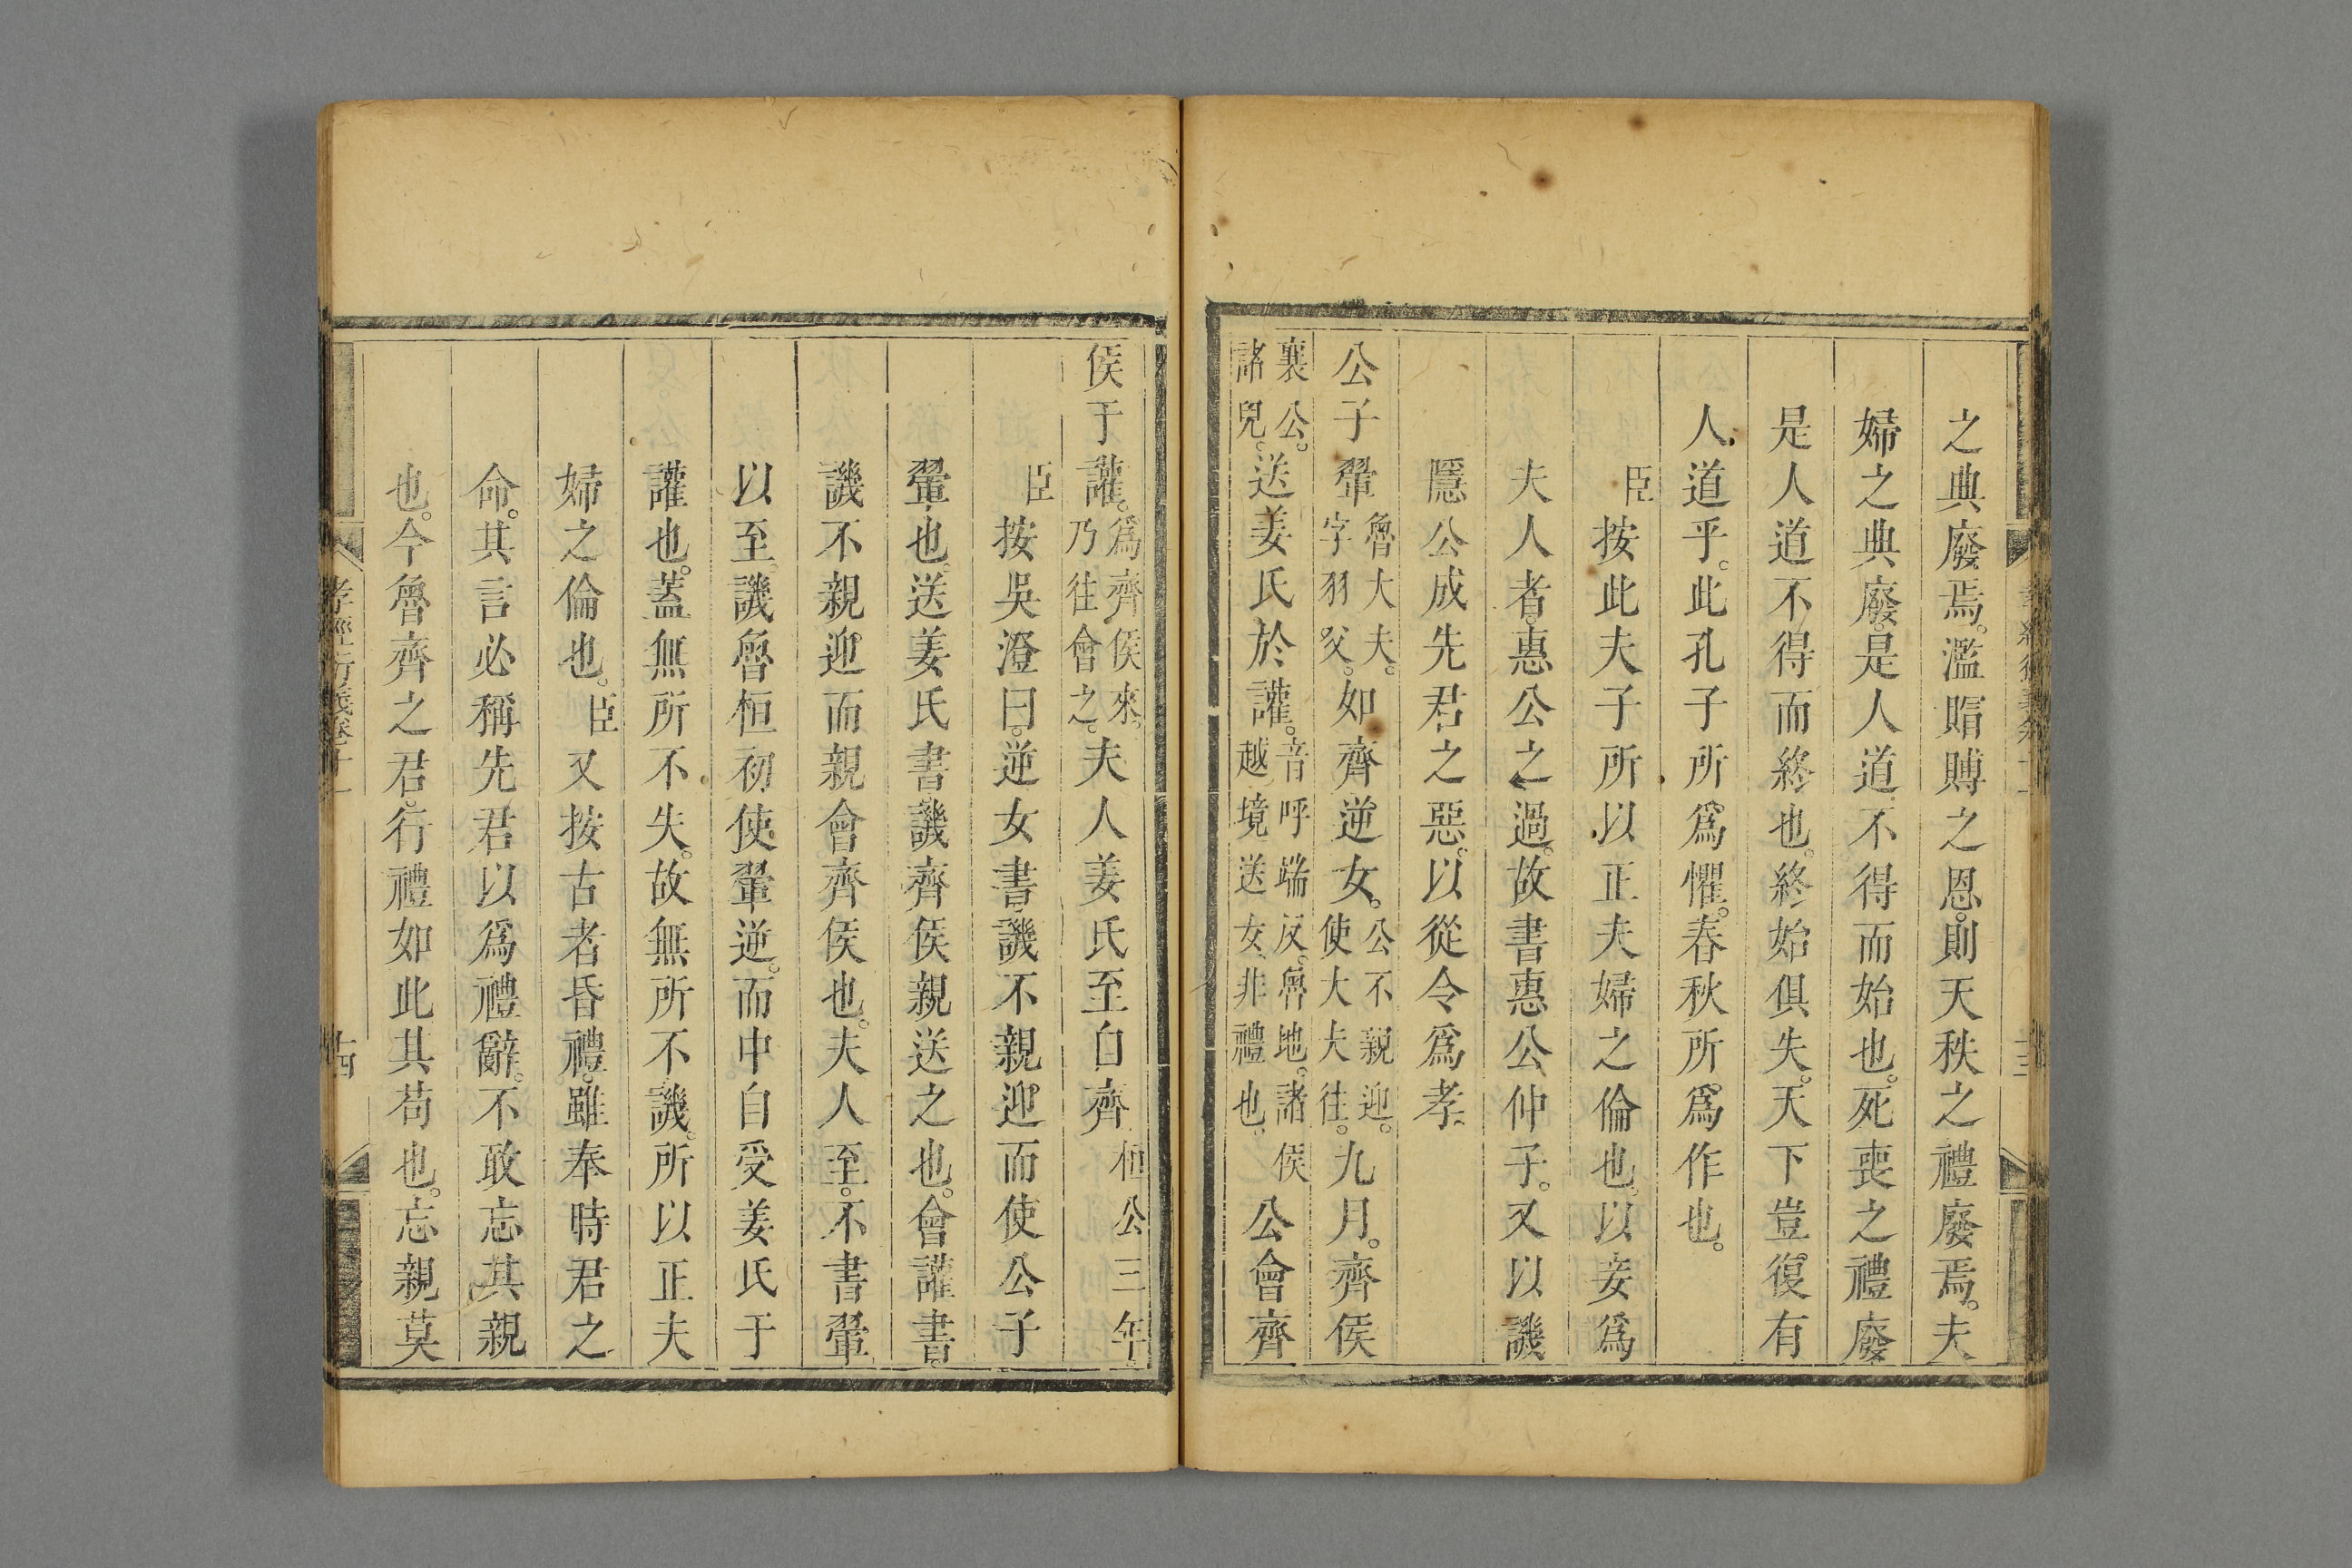 之典廢焉。濫賵賻之恩。則天秩之禮廢焉。夫
婦之典廢。是人道不得而始也。死喪之禮廢
是人道不得而終也。終始俱失。天下豈復有
人道乎。此孔子所爲懼。春秋所爲作也。
臣按此夫子所以正夫婦之倫也。以妾爲
夫人者。惠公之過。故書惠公仲子。又以譏
隱公成先君之惡。以從令爲孝
公子翬魯大夫。字羽父。如齊逆女。公不親迎。使大夫往。九月。齊侯
襄公。諸兒。送姜氏於讙。音呼端反。魯地。諸侯越境送女。非禮也。公會齊
侯于讙。爲齊侯來。乃往會之。夫人姜氏至自齊桓公三年
臣按吳澄曰。逆女書。譏不親迎而使公子
翬也。送姜氏書。譏齊侯親送之也。會讙書。
譏不親迎而親會齊侯也。夫人至。不書翬
以至。譏魯桓初使翬逆。而中自受姜氏于
讙也。蓋無所不失。故無所不譏。所以正夫
婦之倫也。臣又按古者昏禮。雖奉時君之
命。其言必稱先君以爲禮辭。不敢忘其親
也。今魯齊之君。行禮如此其苟也。忘親莫
孝經衍義卷十一
十四